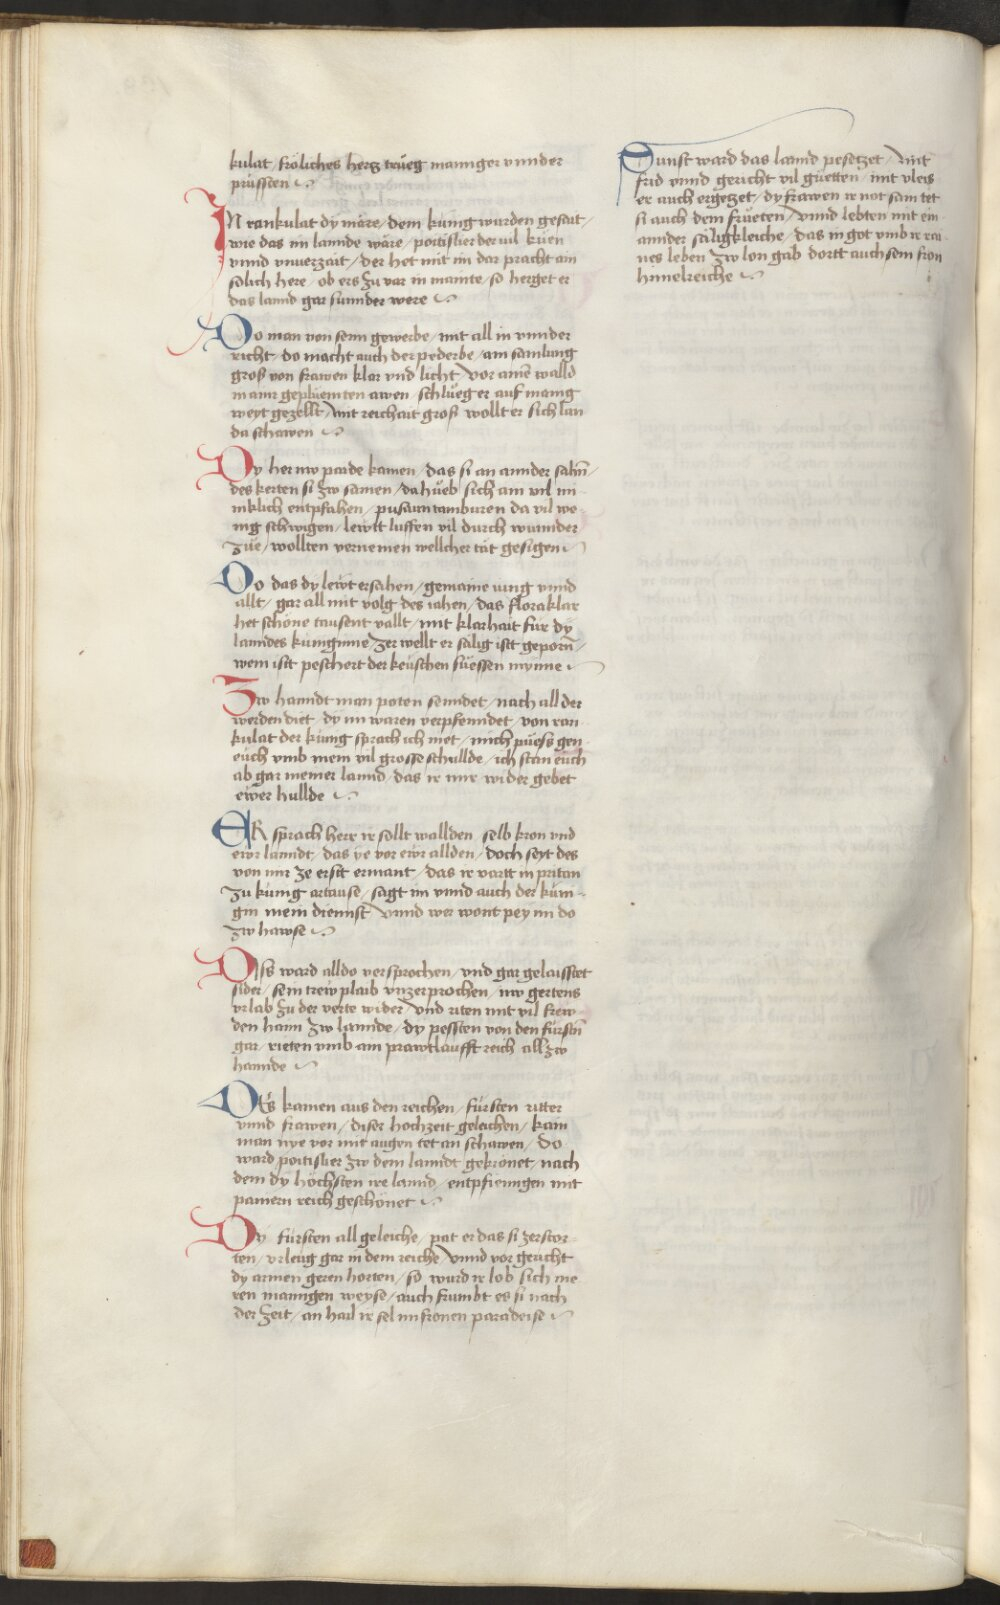 kulat / fröliches hertz truëg manniger vnnder
prüssten
IN rankulat dy märe / dem kunig wurden gesait /
wie das im lannde wäre / poitislier der vil küen
vnnd vnuerzait / der het mit im dar pracht ain
sölich here / ob ers zu var in mainte / so herget er
das lannd gar sunnder were
Do man von senn gewerbe / mit all in vnnder
richt / do macht auch der pederbe / ain samlung
groß von frawen klar vnd licht / vor ainē walld
in ainr geplüemten awen / schlueg er auf manig
weyt gezellt / mit reichait groß wollt er sich lan
da schawen
Dy her nw paide kamen / das si an annder sahñ /
des kerten si zw samen / da hueb sich ain vil mi
niklich entpfahen / pusaun tamburen da vil we
nig schwigen / lewtt luffen vil durch wunnder
zue / wollten vernemen wellcher tät gesigen
Do das dy lewt ersahen / gemaine iung vnnd
allt / gar all mit volg des iahen / das floraklar
het schöne tausent vallt / mit klarhait für dy
lanndes küniginne / zer wellt er sälig ist geporñ /
wem ist peschert der keuschen suessen mynne
Zw hanndt man poten senndet / nach all der
werden diet / dy im waren verpfenndet / von ran
kulat der kunig sprach ich niet / mich puëss gen
euch vmb mein vil grosse schullde / ich stan euch
ab gar meiner lannd / das ir mir wider gebet
ewer hullde
ER sprach herr ir sollt wallden / selb kron vnd
ewr lanndt / das ye vor ewr allden / doch seyt des
von mir ze erst ermant / das ir vartt in pritan
zu kunig artause / sagt im vnnd auch der kün
gin mein diennst / vnnd wer wont pey im do
zw hawse
Diss ward alldo versprochen / vnd gar gelaisstet
sider / sein trew plaib vnzerprochen / nw gertens
vrlab zu der verte wider / vnd riten mit vil frew
den haim zw lannde / dy pessten von den fürstñ
gar / rieten vmb ain prawtlaufft reich all zw
hannde
Des kamen aus den reichen / fürsten ritter
vnnd frawen / diser hochzeit geleichen / kain
man nye vor mit augen tet an schawen / do
ward poitislier zw dem lanndt gekrönet / nach
dem dy höchsten ire lannd / entpfienngen mit
panern reich geschönet
Dy fürsten all geleiche / pat er das si zerstor
ten / vrleug gar in dem reiche / vnnd vor gericht
dy armen geren horten / so wurd ir lob sich me
ren manigen weyse / auch frumbt es si nach
der zeit / an hail ir sel im fronen paradeise
Sunst ward das lannd pesetzet / mit
frid vnnd gericht vil guetten / mit vleis
er auch ergezet / dy frawen ir not sam tet
si auch dem frueten / vnnd lebten mit ein
annder säligkleiche / das in got vmb ir rai
nes leben zw lon gab dortt auch sein fron
himelreiche